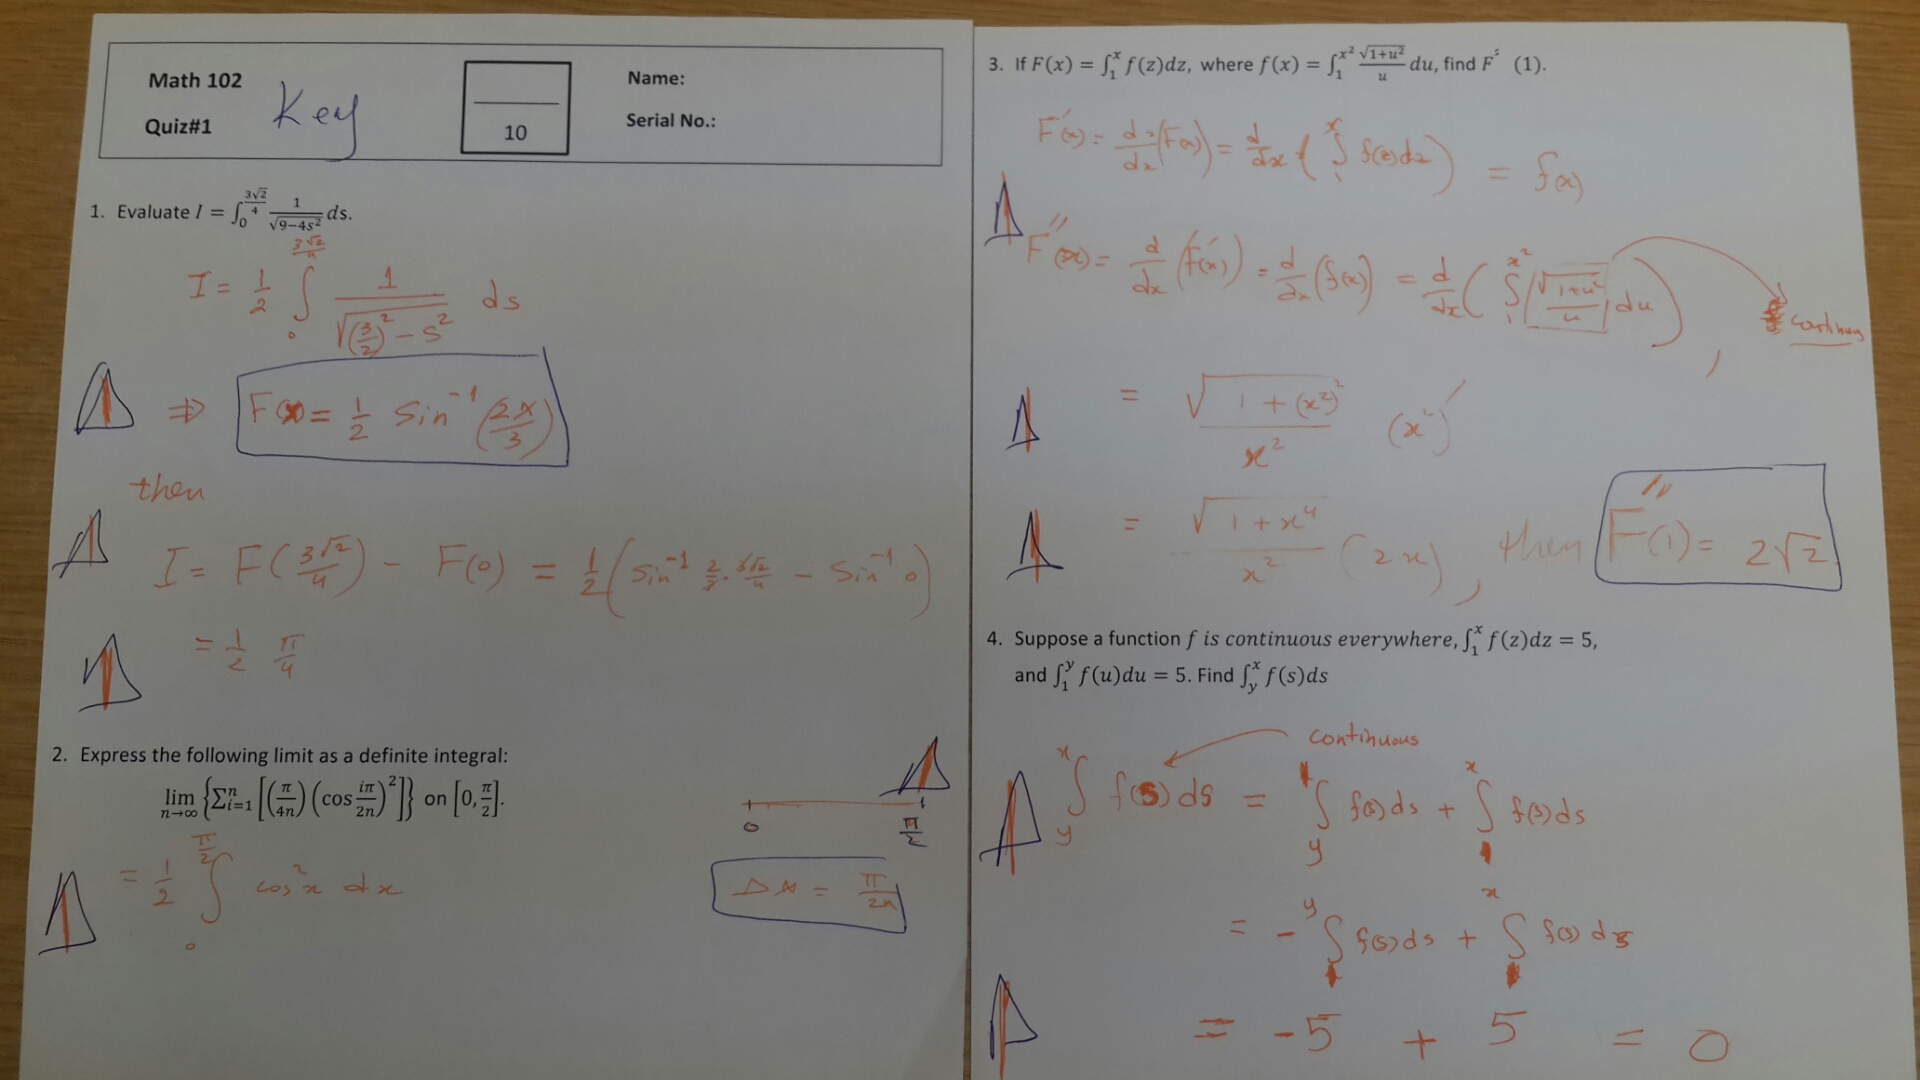 Math 102
Key
Quiz#1
10
Name:
Serial No.:
1. Evaluate I = ∫₀^(3√2/4) 1/√(9−4s²) ds.
I = 1/2 ∫₀^(3√2/4) 1/√((3/2)² − s²) ds
⇒ F(x) = 1/2 Sin⁻¹(2x/3)
then
I = F(3√2/4) − F(0) = 1/2 (Sin⁻¹ 2/3 · 3√2/4 − Sin⁻¹ 0)
= 1/2 π/4
2. Express the following limit as a definite integral:
lim n→∞ {∑ⁿᵢ₌₁ [(π/4n) (cos iπ/2n)²]} on [0, π/2].
0 π/2
= 1/2 ∫₀^(π/2) cos²x dx
Δx = π/2n
3. If F(x) = ∫₁ˣ f(z)dz, where f(x) = ∫₁^(x²) √(1+u²)/u du, find F (1).
F′(x) = d/dx (F(x)) = d/dx (∫₁ˣ f(z)dz) = f(x)
F″(x) = d/dx (F′(x)) = d/dx (f(x)) = d/dx (∫₁^(x²) √(1+u²)/u du),
= √(1+(x²)²)/x² (x²)′
= √(1+x⁴)/x² (2x), then F″(1) = 2√2
4. Suppose a function f is continuous everywhere, ∫₁ˣ f(z)dz = 5,
and ∫₁ʸ f(u)du = 5. Find ∫ᵧˣ f(s)ds
continuous
∫ᵧˣ f(s)ds = ∫ᵧ¹ f(s)ds + ∫₁ˣ f(s)ds
= − ∫₁ʸ f(s)ds + ∫₁ˣ f(s)ds
= −5 + 5 = 0